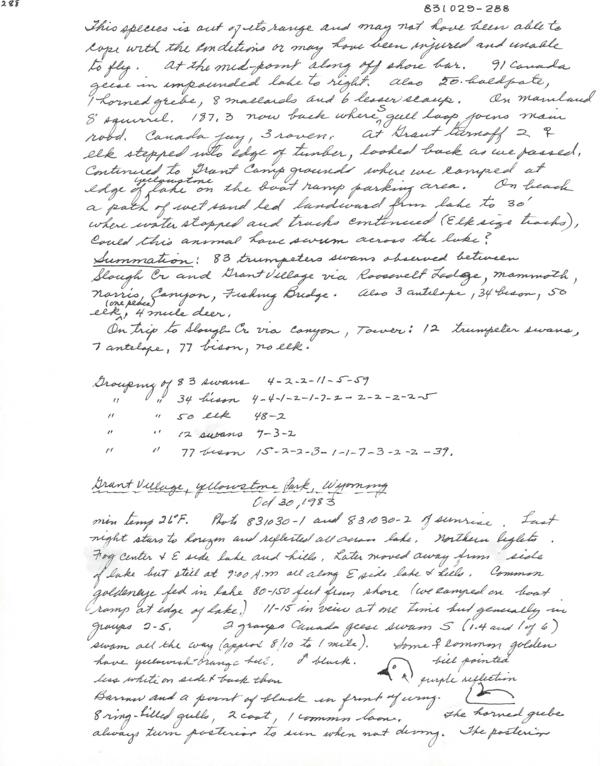 288
831029-288
This species is out of its range and may not have been able to
cope with the conditions or may have been injured and unable
to fly. At the mid-point along off shore bar. 91 Canada
geese in impounded lake to right. Also 20 baldpate,
1 horned grebe, 8 mallards and 6 lesser scaups. On mainland
8 squirrel. 187.3 now back where S gull loop joins main
road. Canada jay, 3 raven. At Grant turnoff 2 ♀
elk stepped into edge of timber, looked back as we passed.
Continued to Grant Camp grounds where we camped at
edge of yellowstone lake on the boat ramp parking area. On beach
a path of wet sand led landward from lake to 30'
where water stopped and tracks continued (Elk size tracks),
Could this animal have swum across the lake?
Summation: 83 trumpeters swans observed between
Slough Cr and Grant Village via Roosevelt Lodge, mammoth,
norris, Canyon, Fishing Bridge. Also 3 antelope, 34 bison, 50
elk, 4 mule deer.
On trip to Slough Cr via canyon, Tower: 12 trumpeter swans,
7 antelope, 77 bison, no elk.
Grouping of 83 swans 4-2-2-11-5-59
" " 34 bison 4-4-1-2-1-7-2-2-2-2-2-5
" " 50 elk 48-2
" " 12 swans 7-3-2
" " 77 bison 15-2-2-3-1-1-7-3-2-2-39.
Grant Village, yellowstone Park, Wyoming
Oct 30, 1983
min temp 26°F. Photo 831030-1 and 831030-2 of sunrise. Last
night stars to horizon and reflected all across lake. Northern lights.
Fog center & E side lake and hills. Later moved away from side
of lake but still at 9:00 A.m all along E side lake & hills. Common
goldeneye fed in lake 80-150 feet from shore (we camped on boat
ramp at edge of lake.) 11-15 in veiw at one time but generally in
groups 2-5. 2 groups Canada geese swam S (1-4 and 1 of 6)
swam all the way (approx 8/10 to 1 mile). Some ♀ common golden
have yellowish orange bill. ♂ black. bill pointed
less white on side & back than purple reflection
Barrow and a point of black in front of wing.
8 ring-billed gulls, 2 coot, 1 common loon. The horned grebe
always turn posterior to sun when not diving. The posterior